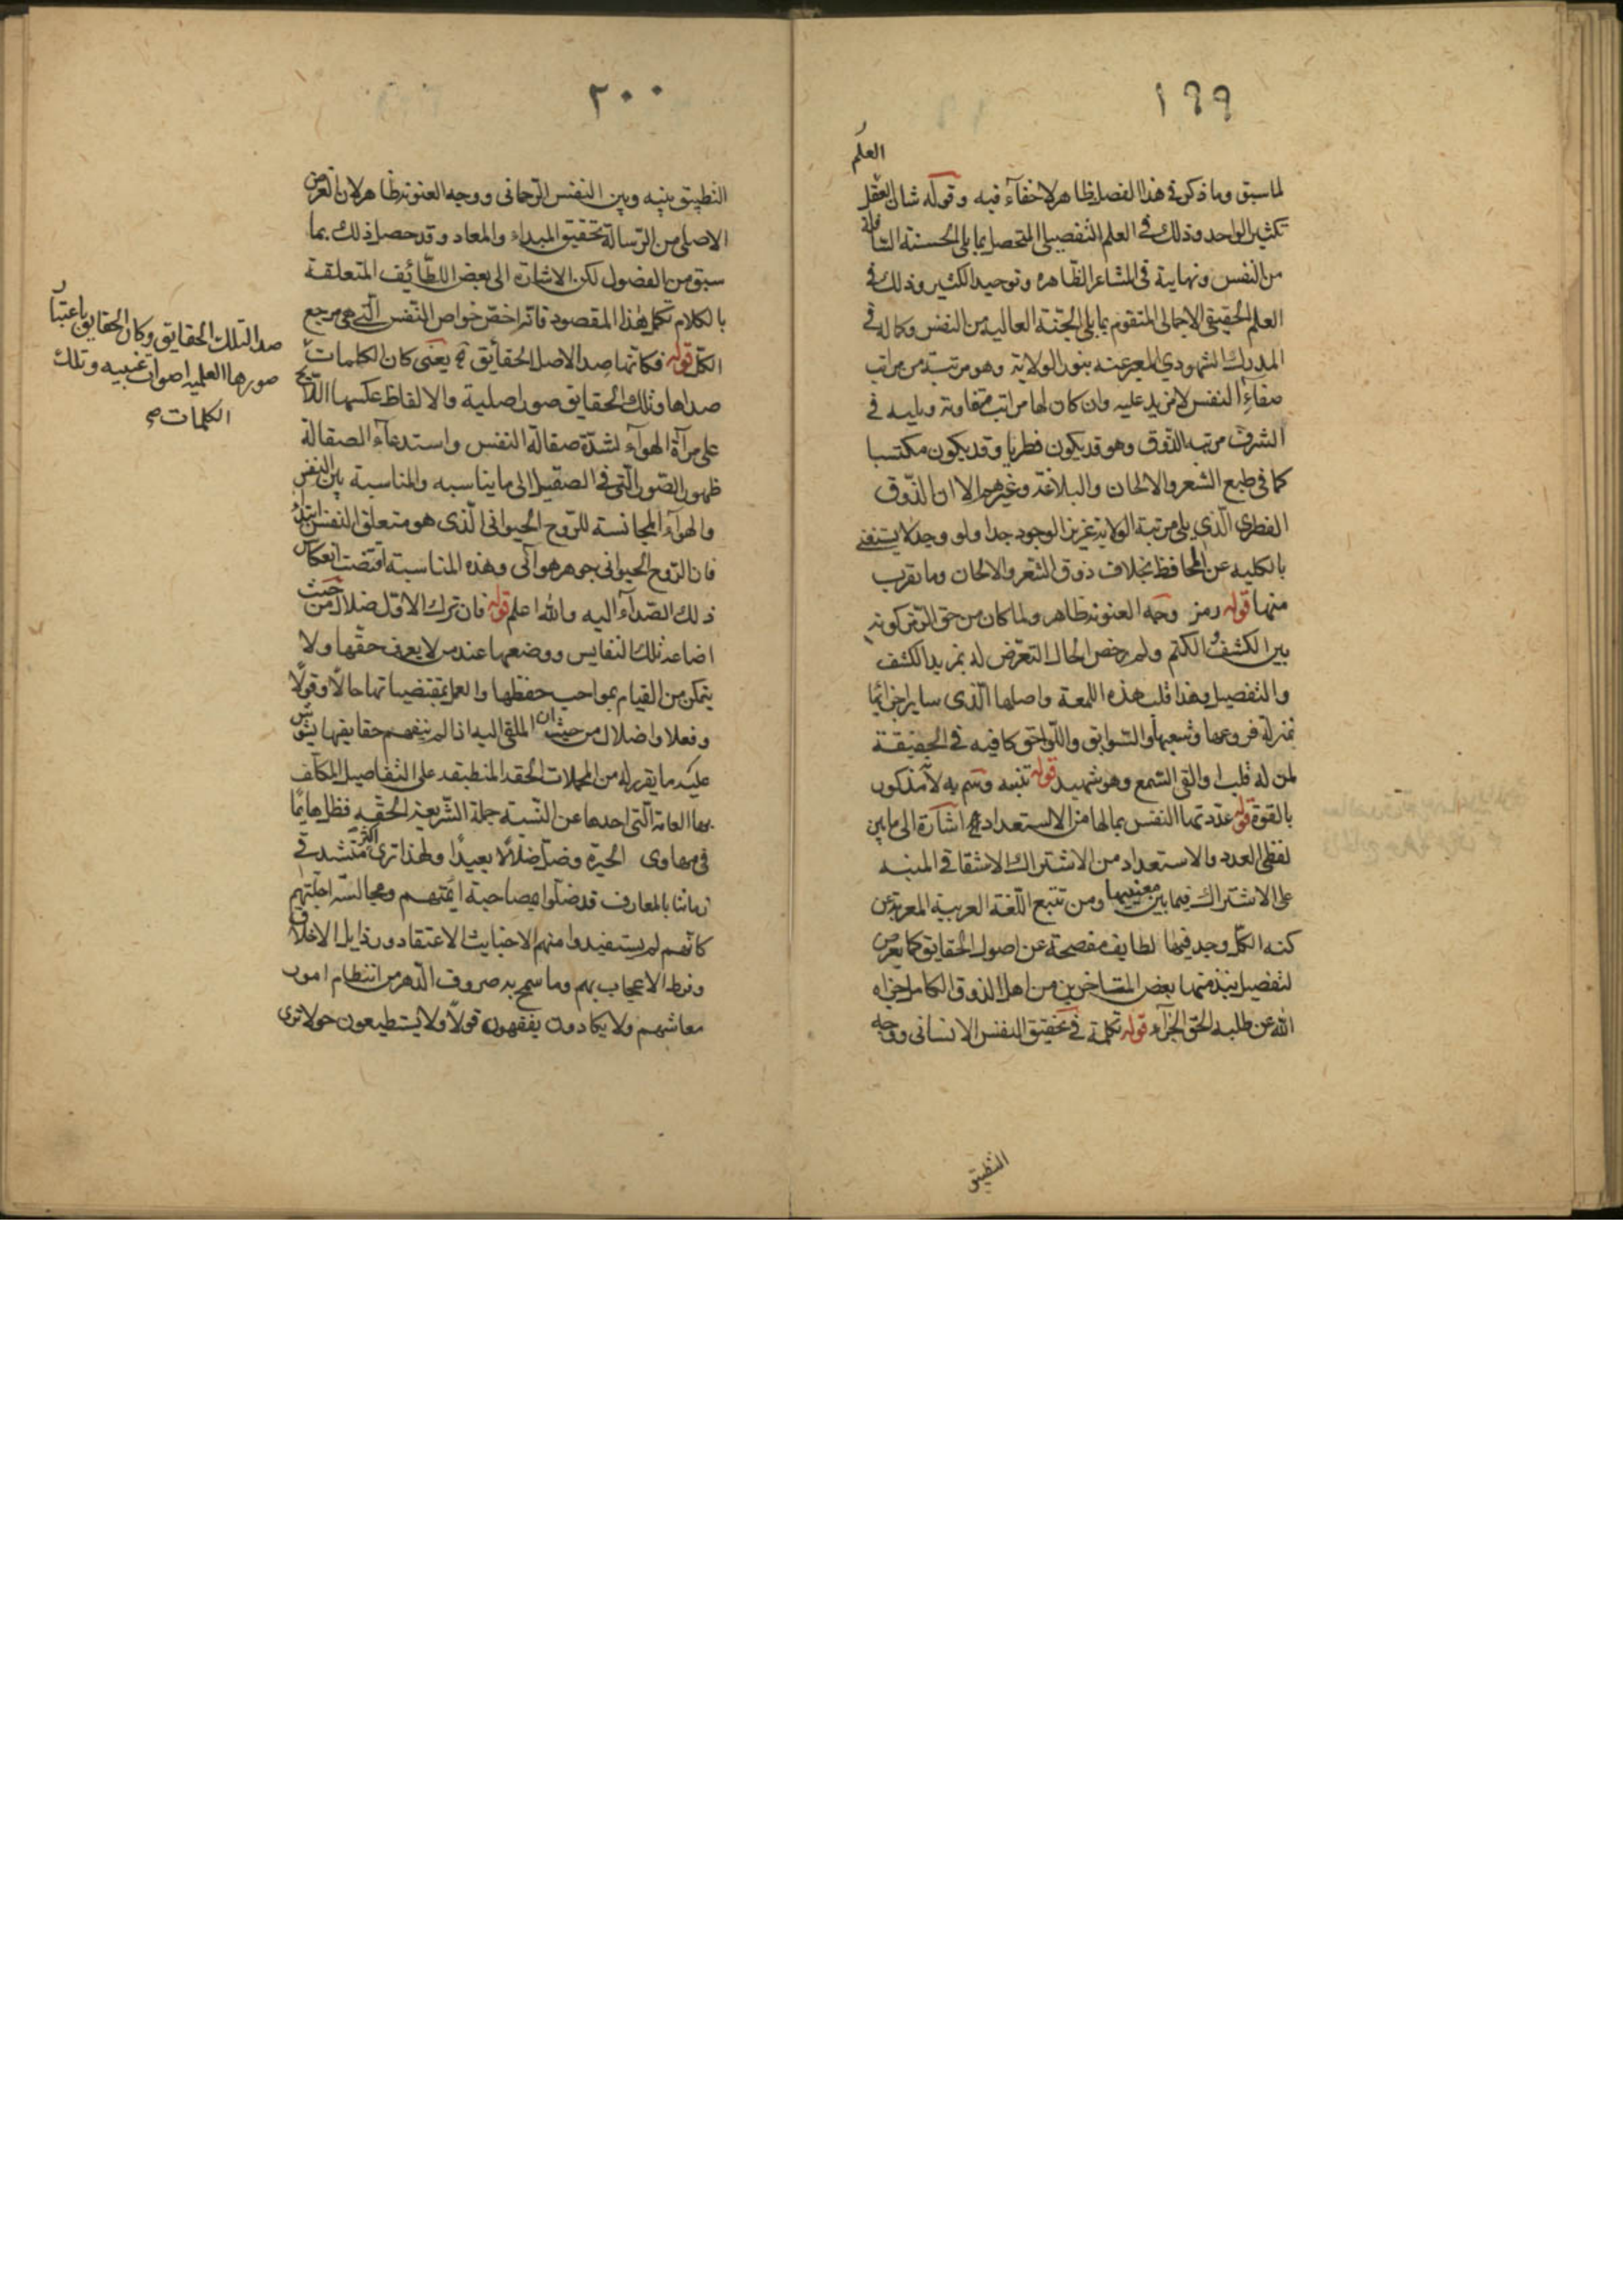 ١٩٩
العلم
لما سبق وما ذكر في هذا الفصل ظاهر لا خفآء فيه وقوله شان العقل
تكثير الواحد وذلك في العلم التفصيلي المتحصل بما يلي الجنبة السافلة
من النفس ونهايته في المشاعر الظاهره وتوحيد الكثير وذلك في
العلم الحقيقي الاجمالي المتقوم بما يلي الجنبة العاليه من النفس وكماله في
المدرك الشهودي المعبر عنه بنور الولاية وهو مرتبة من مراتب
صفآء النفس لا مزيد عليه وان كان لها مراتب متفاوتة ويليه في
الشرف مرتبه الذوق وهو قد يكون فطريا وقد يكون مكتسبا
كما في طبع الشعر والالحان والبلاغة وغيرهم الا ان الذوق
الفطرى الذي يلي مرتبة الولاية عزيز الوجود جدا ولو وجد لا يستغني
بالكليه عن المحافظ بخلاف ذوق الشعر والالحان وما يقرب
منها قوله رمز وجه العنونة ظاهر ولما كان من حق الرمز كونه
بين الكشف والكتم ولم يرخص الحال التعرض له بمزيد الكشف
والتفصيل وهذا قلب هذه اللمعة واصلها الذى ساير اجزائها
بمنزلة فروعها وشعبها والسوابق واللواحق كافيه في الحقيقة
لمن له قلب او القى السمع وهو شهيد قوله تنبيه وسم به لانه مذكور
بالقوة قوله عددتها النفس بمالها من الاستعداد اشارة الى ما بين
لفظي العدد والاستعداد من الاشتراك الاشتقاقي المنبه
على الاشتراك فيما بين معنييهما ومن تتبع اللغة العربية المعربة عن
كنه الكل وجد فيها لطايف مفصحة عن اصول الحقايق كما تعرض
لتفصيل نبذ منها بعض المتاخرين من اهل الذوق الكامل جزاه
الله عن طلبه الحق الجزآء قوله تكملة في تحقيق النفس الانسانى ووجه
التطبيق
٢٠٠
التطبيق بينه وبين النفس الرحمانى ووجه العنونة ظاهر لان الغرض
الاصلي من الرسالة تحقيق المبداء والمعاد وقد حصل ذلك بما
سبق من الفصول لكن الاشارة الى بعض اللطائف المتعلقة
بالكلام تكمل هذا المقصود فانه اخص خواص النفس التي هي مرجع
الكل قوله فكانها صدا لاصل الحقائق يعنى كان الكلمات
صداها وتلك الحقايق صور اصلية والالفاظ عكسها اللايح
على مرآة الهوآء لشدة صقالة النفس واستدعآء الصقالة
ظهور الصور التي في الصقيل الى ما يناسبه والمناسبة بين النفس
والهوآء المجانسة للروح الحيوانى الذى هو متعلق النفس ابتداء
فان الروح الحيوانى جوهر هوآئى وهذه المناسبة اقتضت انعكاس
ذلك الصدآء اليه والله اعلم قوله فان ترك الاول ضلال من حيث
اضاعة تلك النفايس ووضعها عند من لا يعرف حقها ولا
يتمكن من القيام بمواجب حفظها والعمل بمقتضياتها حالا وقولا
وفعلا واضلال من حيث ان الملقى اليه اذا لم يفهم حقايقها يشوش
عليه ما يقرر له من المجملات الحقة المنطبقة على التفاصيل المكلف
بها العامة التى احدها عن النسبة جملة الشريعة الحقه فظل هايما
في مهاوى الحيرة وضل ضلالا بعيدا ولهذا ترى اكثر متشدقي
زماننا بالمعارف قد ضلوا بمصاحبة ائمتهم ومجالسة اجلتهم
كانهم لم يستفيدوا منهم الا خبايث الاعتقاد ورذايل الاخلاق
وفرط الاعجاب بهم وما سمح به صروف الدهر من انتظام امور
معاشهم ولا يكادون يفقهون قولا ولا يستطيعون حولا ترى
صدا لتلك الحقايق وكان الحقايق باعتبار
صورها العلميه اصوات غيبيه وتلك
الكلمات صح